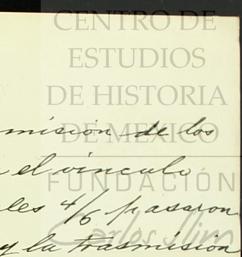 CENTRO DE
ESTUDIOS
DE HISTORIA
DE MEXICO
misión de los
el vínculo
FUNDACIÓN
les 4/6 pasaron
Carlos Slim
y la trasmisión